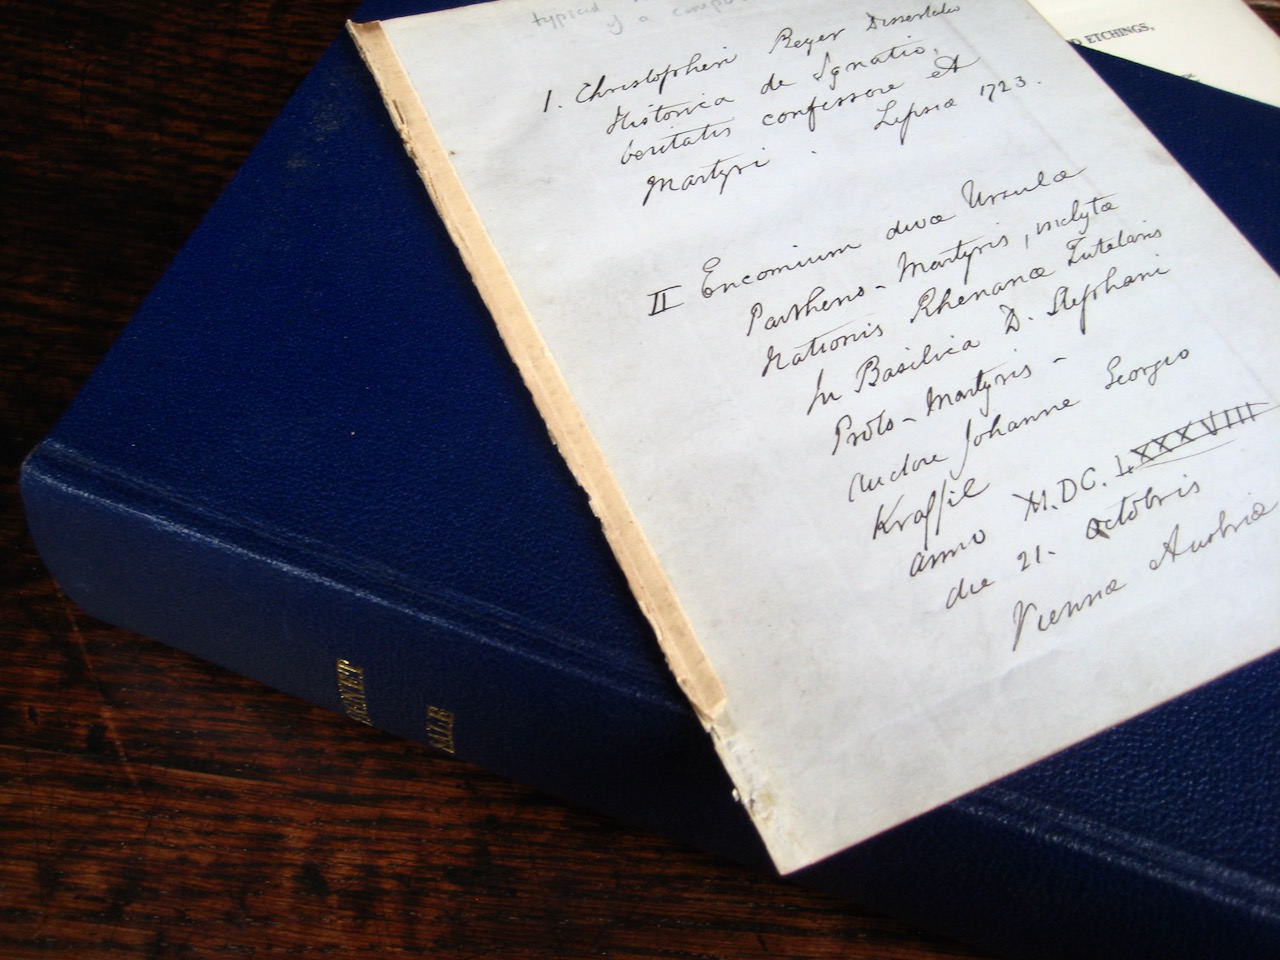 typical
of a
D ETCHINGS,
I. Christopheri Reyer Dissertatio
Historica de Ignatio,
veritatis confessore et
Martyri. Lipsiæ 1723.
II Encomium divæ Ursulæ
Partheno-Martyris, inclytæ
Nationis Rhenanæ Tutelaris
in Basilica D. Stephani
Proto-Martyris -
Auctore Johanne Georgio
anno M.DC.LXXXVIII
die 21. Octobris
Viennæ Austriæ
SALE